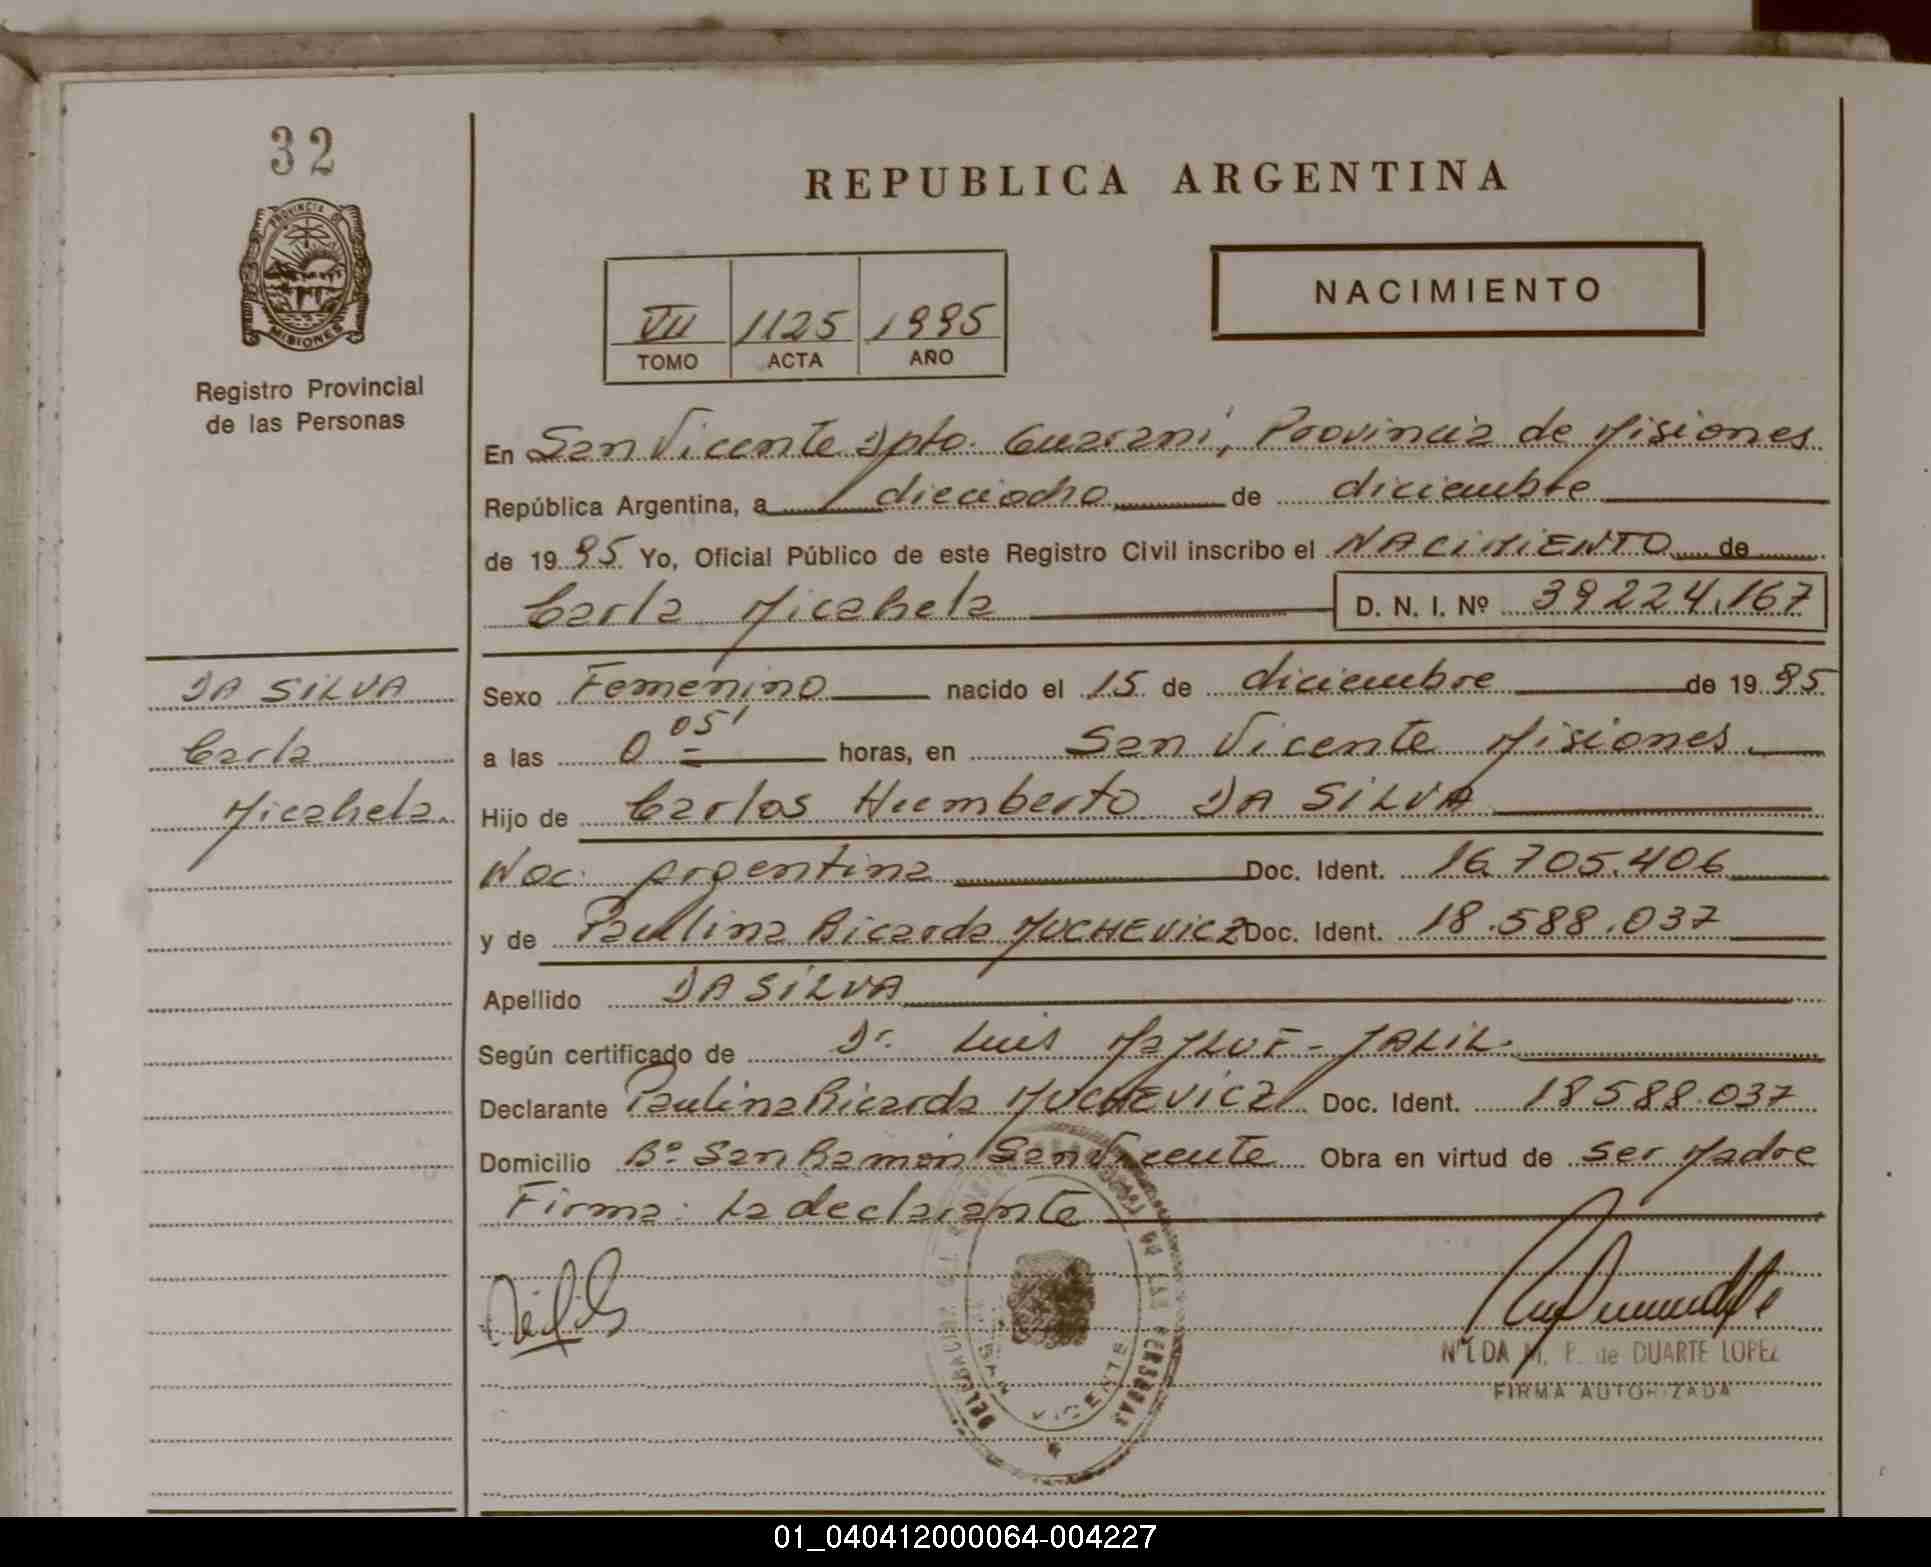 32
PROVINCIA DE
MISIONES
Registro Provincial
de las Personas
REPUBLICA ARGENTINA
VII 1125 1995
TOMO ACTA AÑO
NACIMIENTO
En San Vicente Dpto. Guaraní, Provincia de Misiones
República Argentina, a dieciocho de diciembre
de 1995 Yo, Oficial Público de este Registro Civil inscribo el NACIMIENTO de
Carla Micahela D. N. I. Nº 39224.167
DA SILVA
Carla
Micahela.
Sexo Femenino nacido el 15 de diciembre de 1995
a las 0 05' horas, en San Vicente Misiones.
Hijo de Carlos Humberto DA SILVA
Nac. argentina Doc. Ident. 16.705.406
y de Paulina Ricarda MUCHEVICZ Doc. Ident. 18.588.037
Apellido DA SILVA
Según certificado de Dr. Luis MAJLUF - JALIL.
Declarante Paulina Ricarda MUCHEVICZ Doc. Ident. 18588.037
Domicilio Bº San Ramón San Vicente Obra en virtud de ser Madre
Firma: La declarante
DE LAS PERSONAS
SAN VICENTE
NILDA M. P. de DUARTE LOPEZ
FIRMA AUTORIZADA
01_040412000064-004227